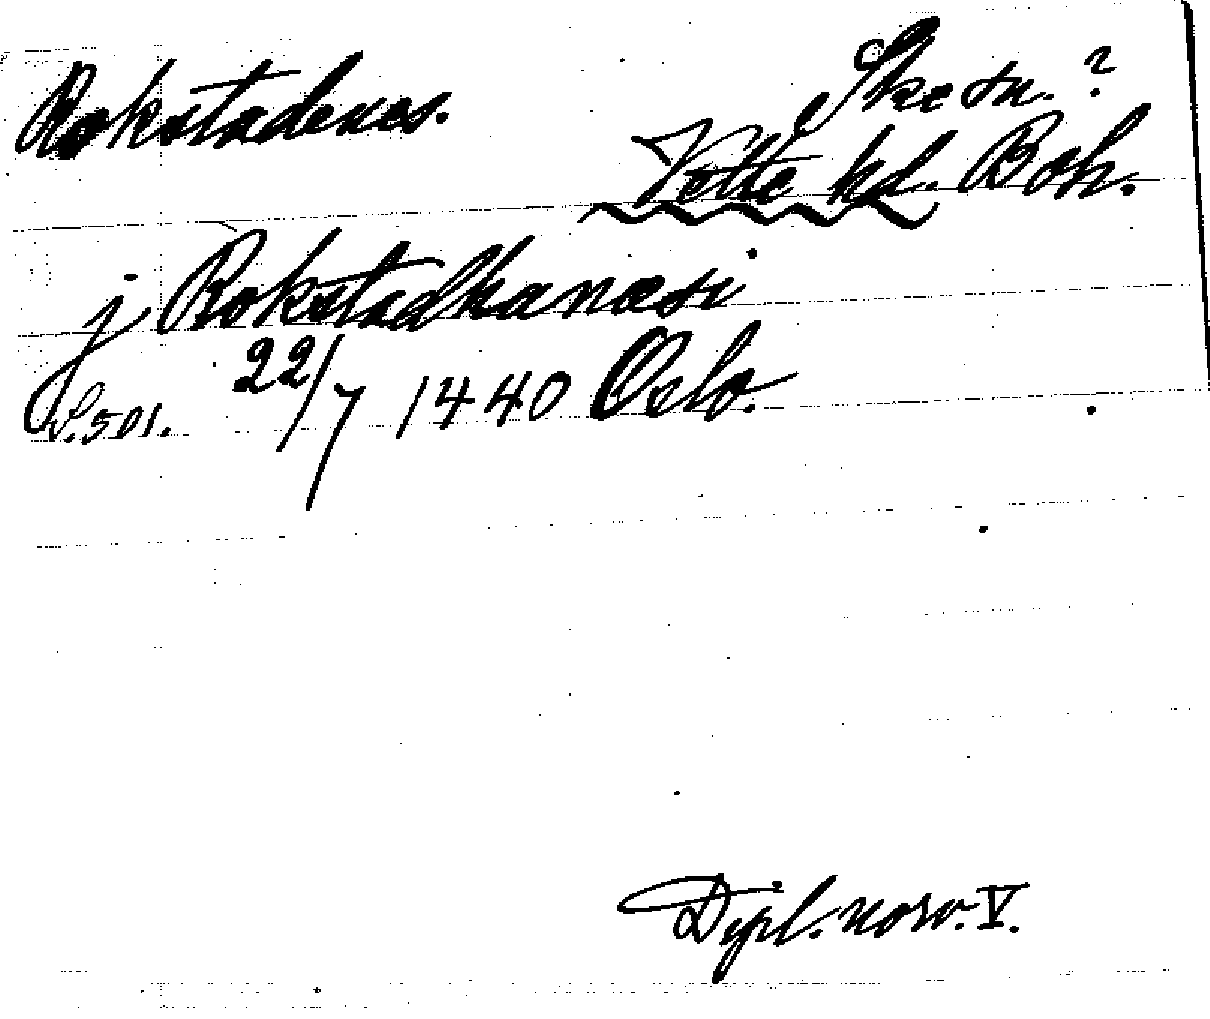 Rokstadenes.
Skee sn. ?
Vette hd. Boh.
j Rokstadhanæsi
S. 501. 22/7 1440 Oslo.
Dipl. norv. V.